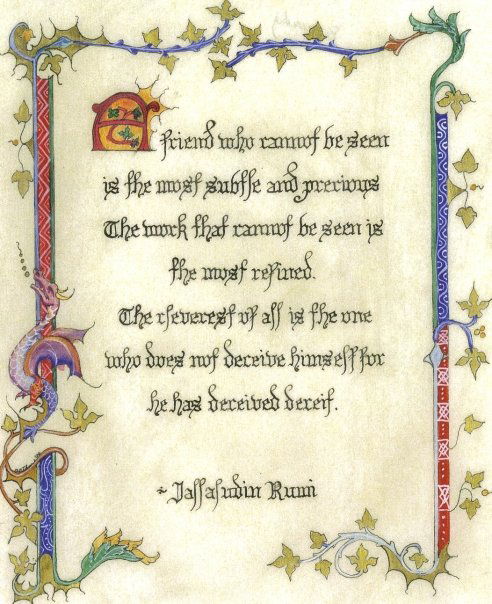 A friend who cannot be seen
is the most subtle and precious
The work that cannot be seen is
the most refined.
The cleverest of all is the one
who does not deceive himself for
he has deceived deceit.
~ Jallaludin Rumi